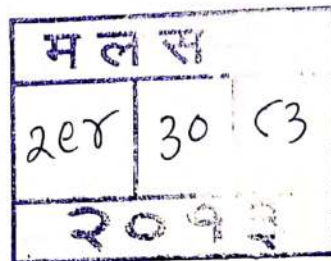 म ल स
२९४ ३० ८३
२०१३